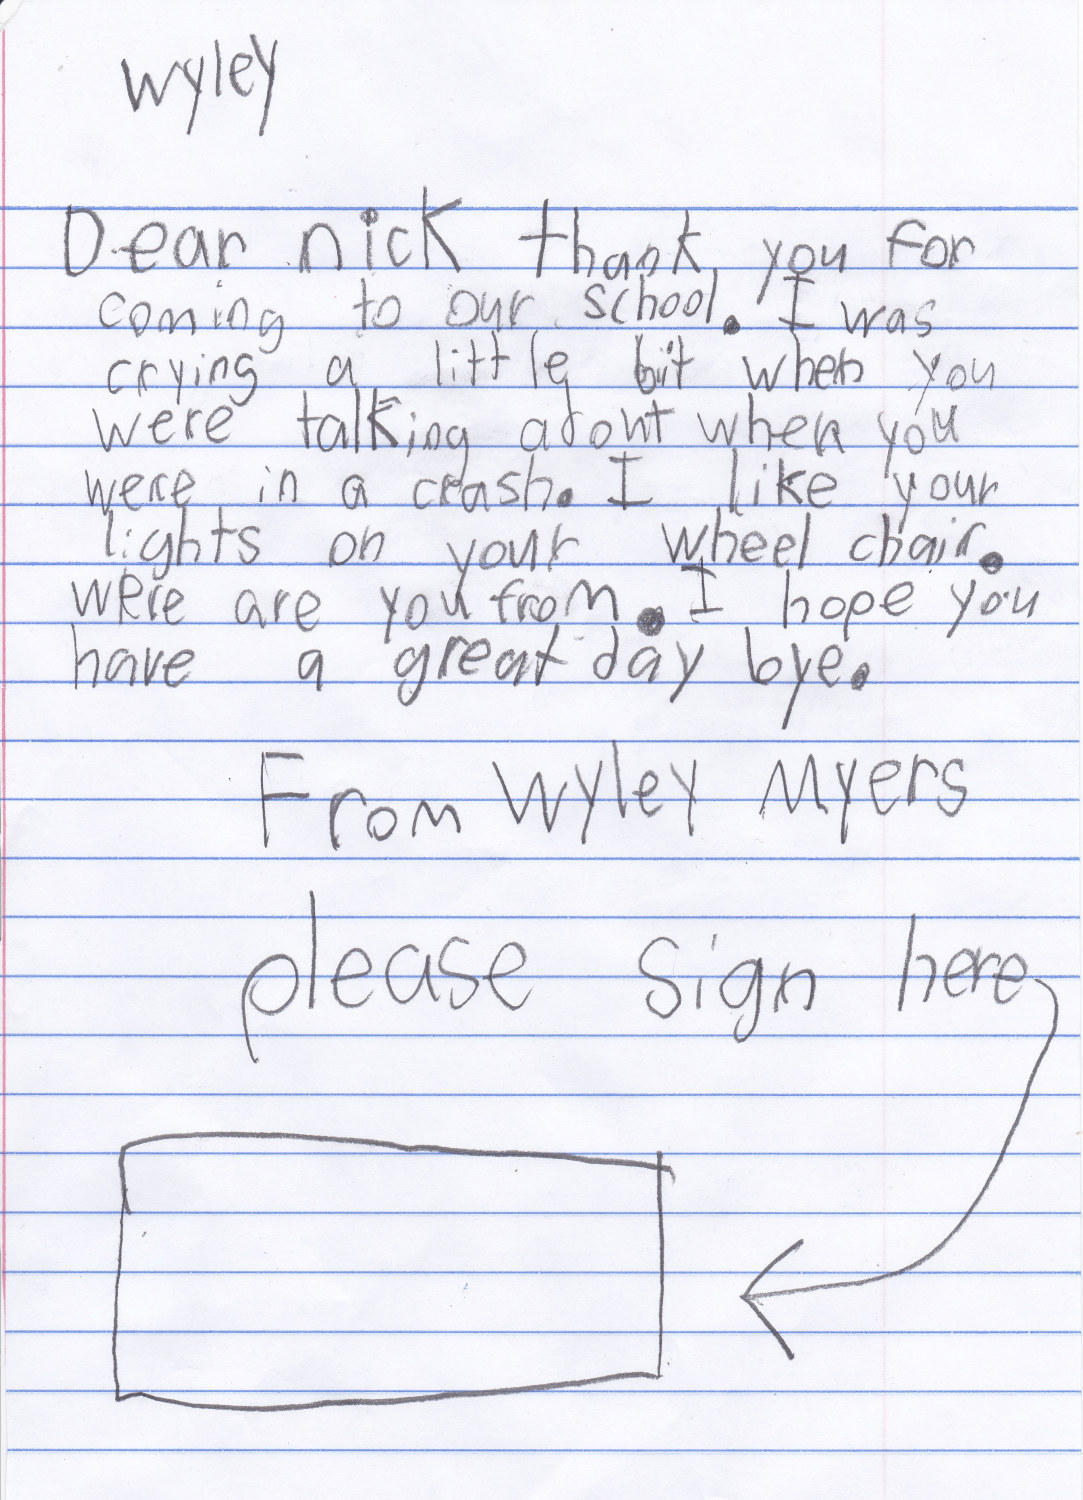 wyley
Dear nick thank you for
coming to our school. I was
crying a little bit when you
were talking adout when you
were in a crash. I like your
lights on your wheel chair.
were are you from. I hope you
have a great day bye.
From Wyley Myers
please sign here